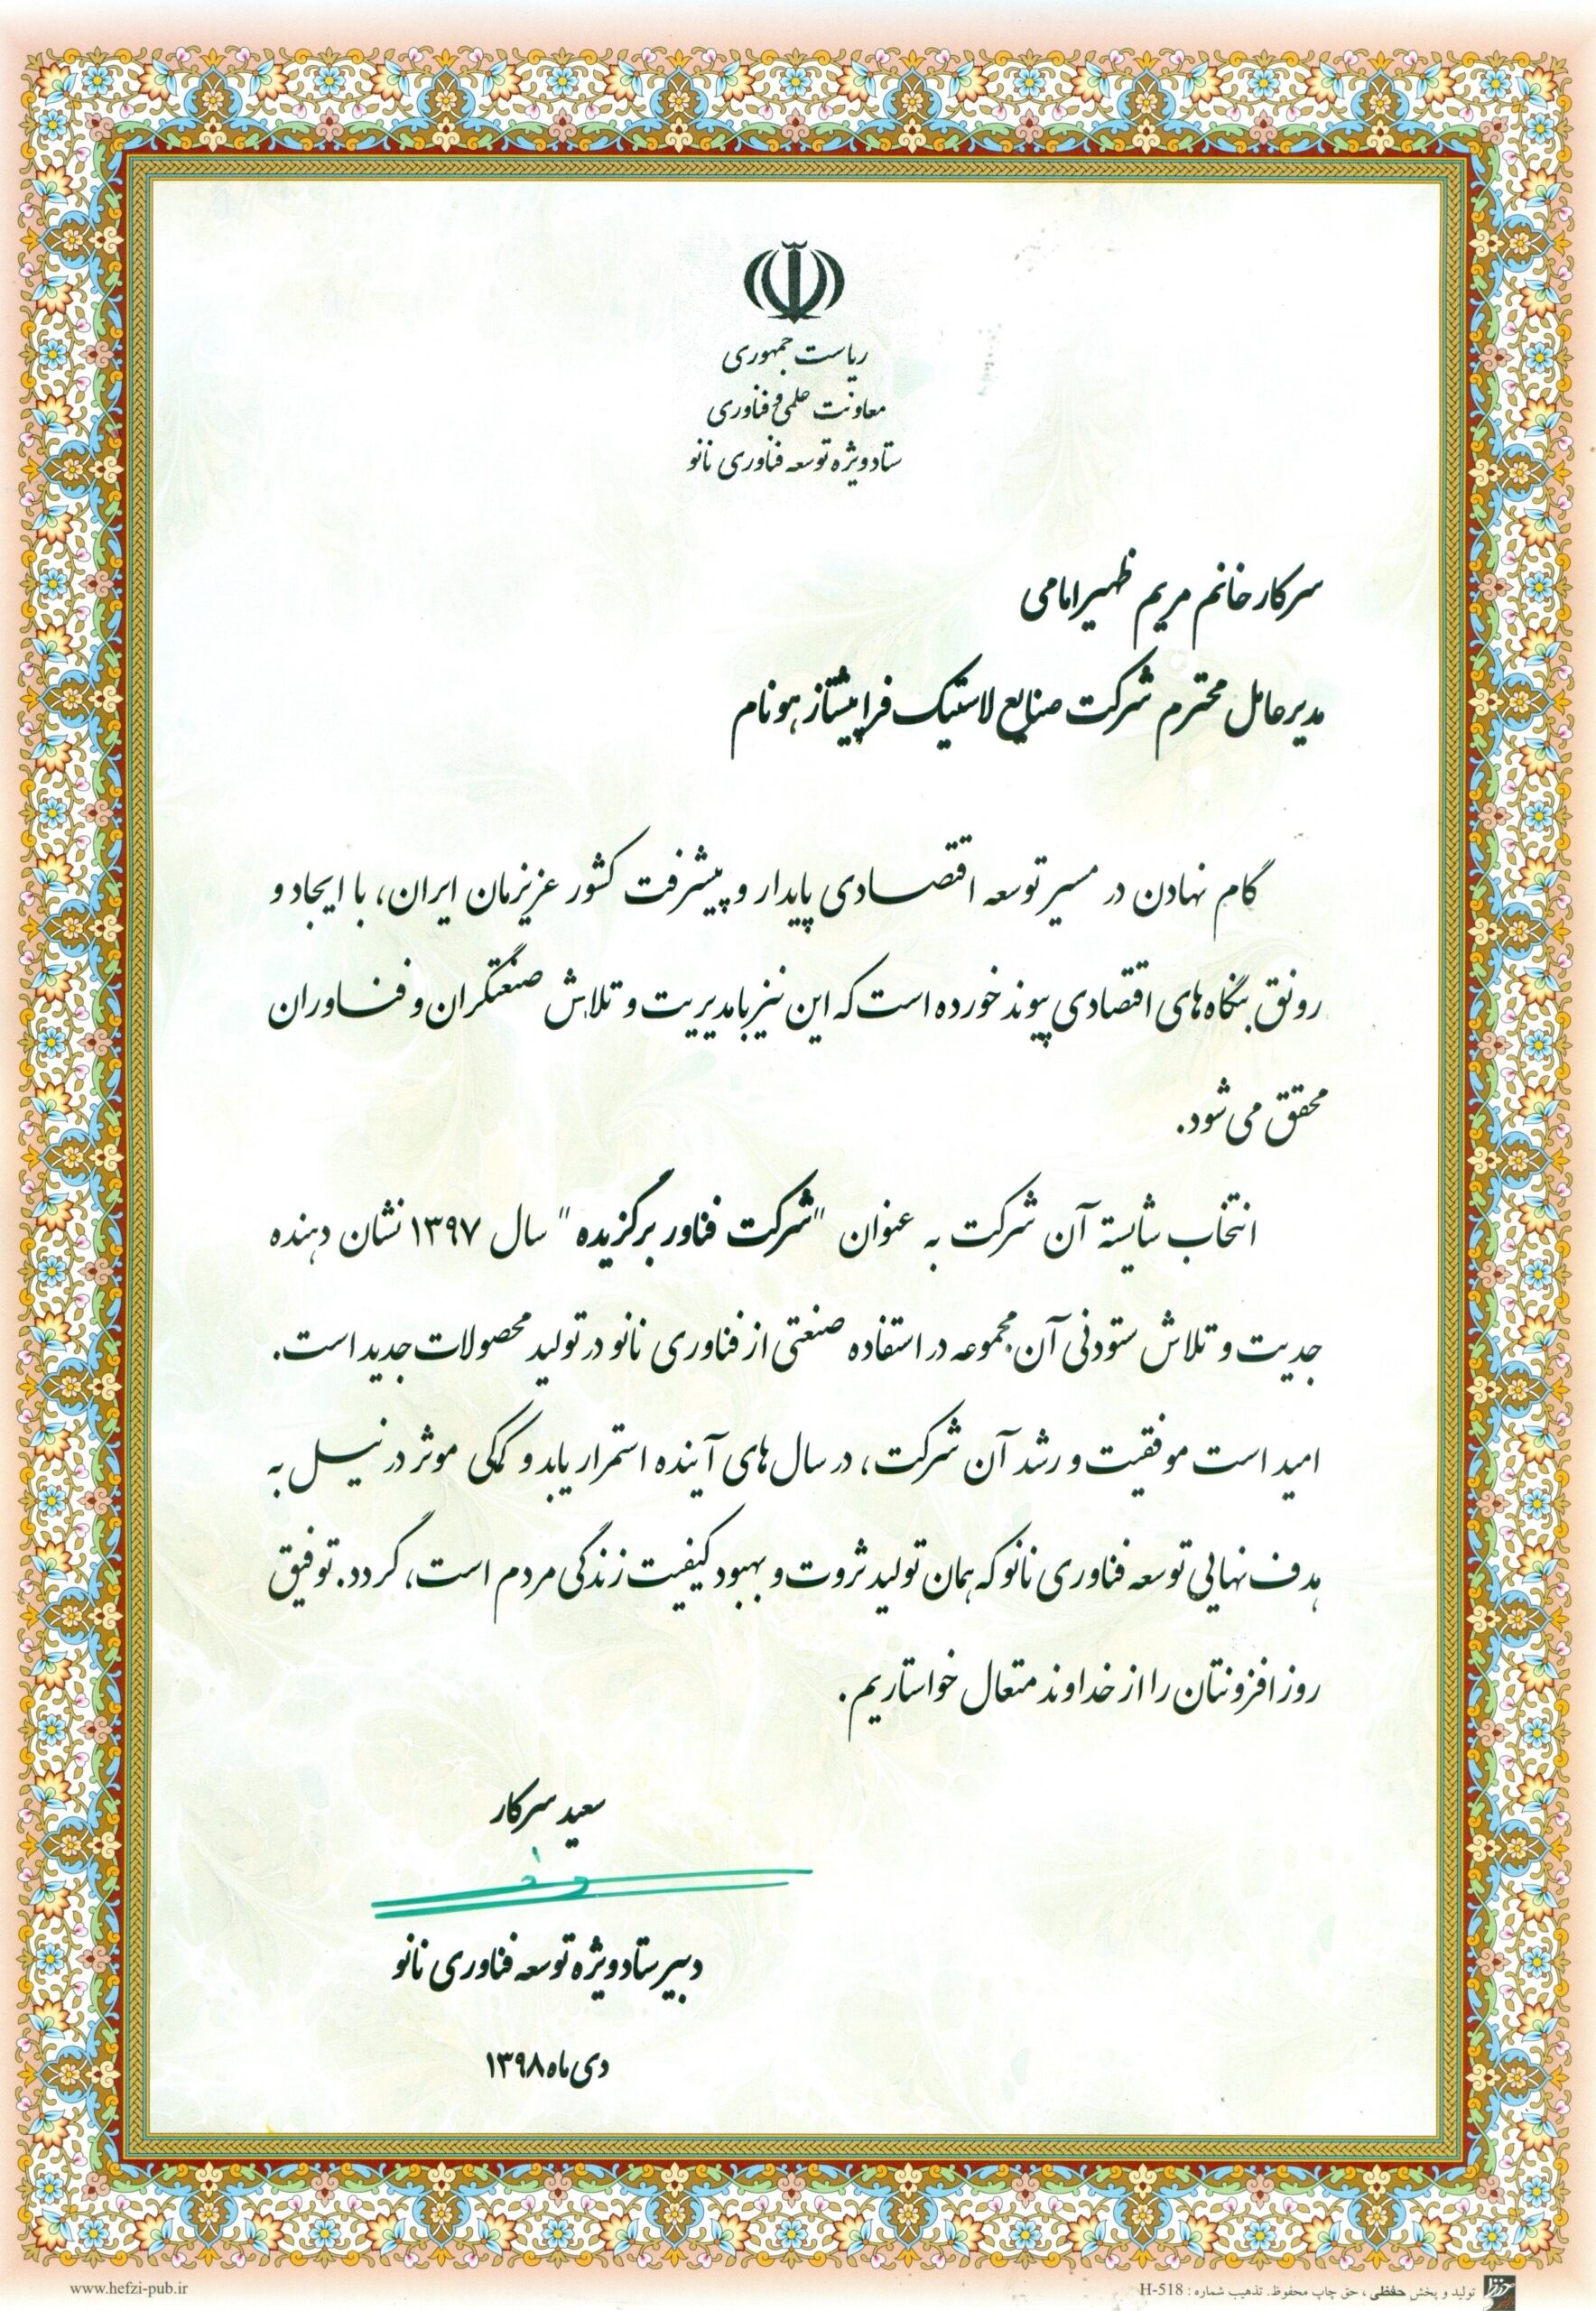 ریاست جمهوری
معاونت علمی و فناوری
ستاد ویژه توسعه فناوری نانو
سرکار خانم مریم ظهیرامامی
مدیرعامل محترم شرکت صنایع لاستیک فراپیشتاز هونام
گام نهادن در مسیر توسعه اقتصادی پایدار و پیشرفت کشور عزیزمان ایران، با ایجاد و
رونق بنگاه‌های اقتصادی پیوند خورده است که این نیز با مدیریت و تلاش صنعتگران و فناوران
محقق می‌شود.
انتخاب شایسته آن شرکت به عنوان "شرکت فناور برگزیده" سال ۱۳۹۷ نشان دهنده
جدیت و تلاش ستودنی آن مجموعه در استفاده صنعتی از فناوری نانو در تولید محصولات جدید است.
امید است موفقیت و رشد آن شرکت، در سال‌های آینده استمرار یابد و کمکی موثر در نیل به
هدف نهایی توسعه فناوری نانو که همان تولید ثروت و بهبود کیفیت زندگی مردم است، گردد. توفیق
روزافزونتان را از خداوند متعال خواستاریم.
سعید سرکار
دبیر ستاد ویژه توسعه فناوری نانو
دی ماه ۱۳۹۸
تولید و پخش حفظی، حق چاپ محفوظ. تذهیب شماره : H-518
www.hefzi-pub.ir